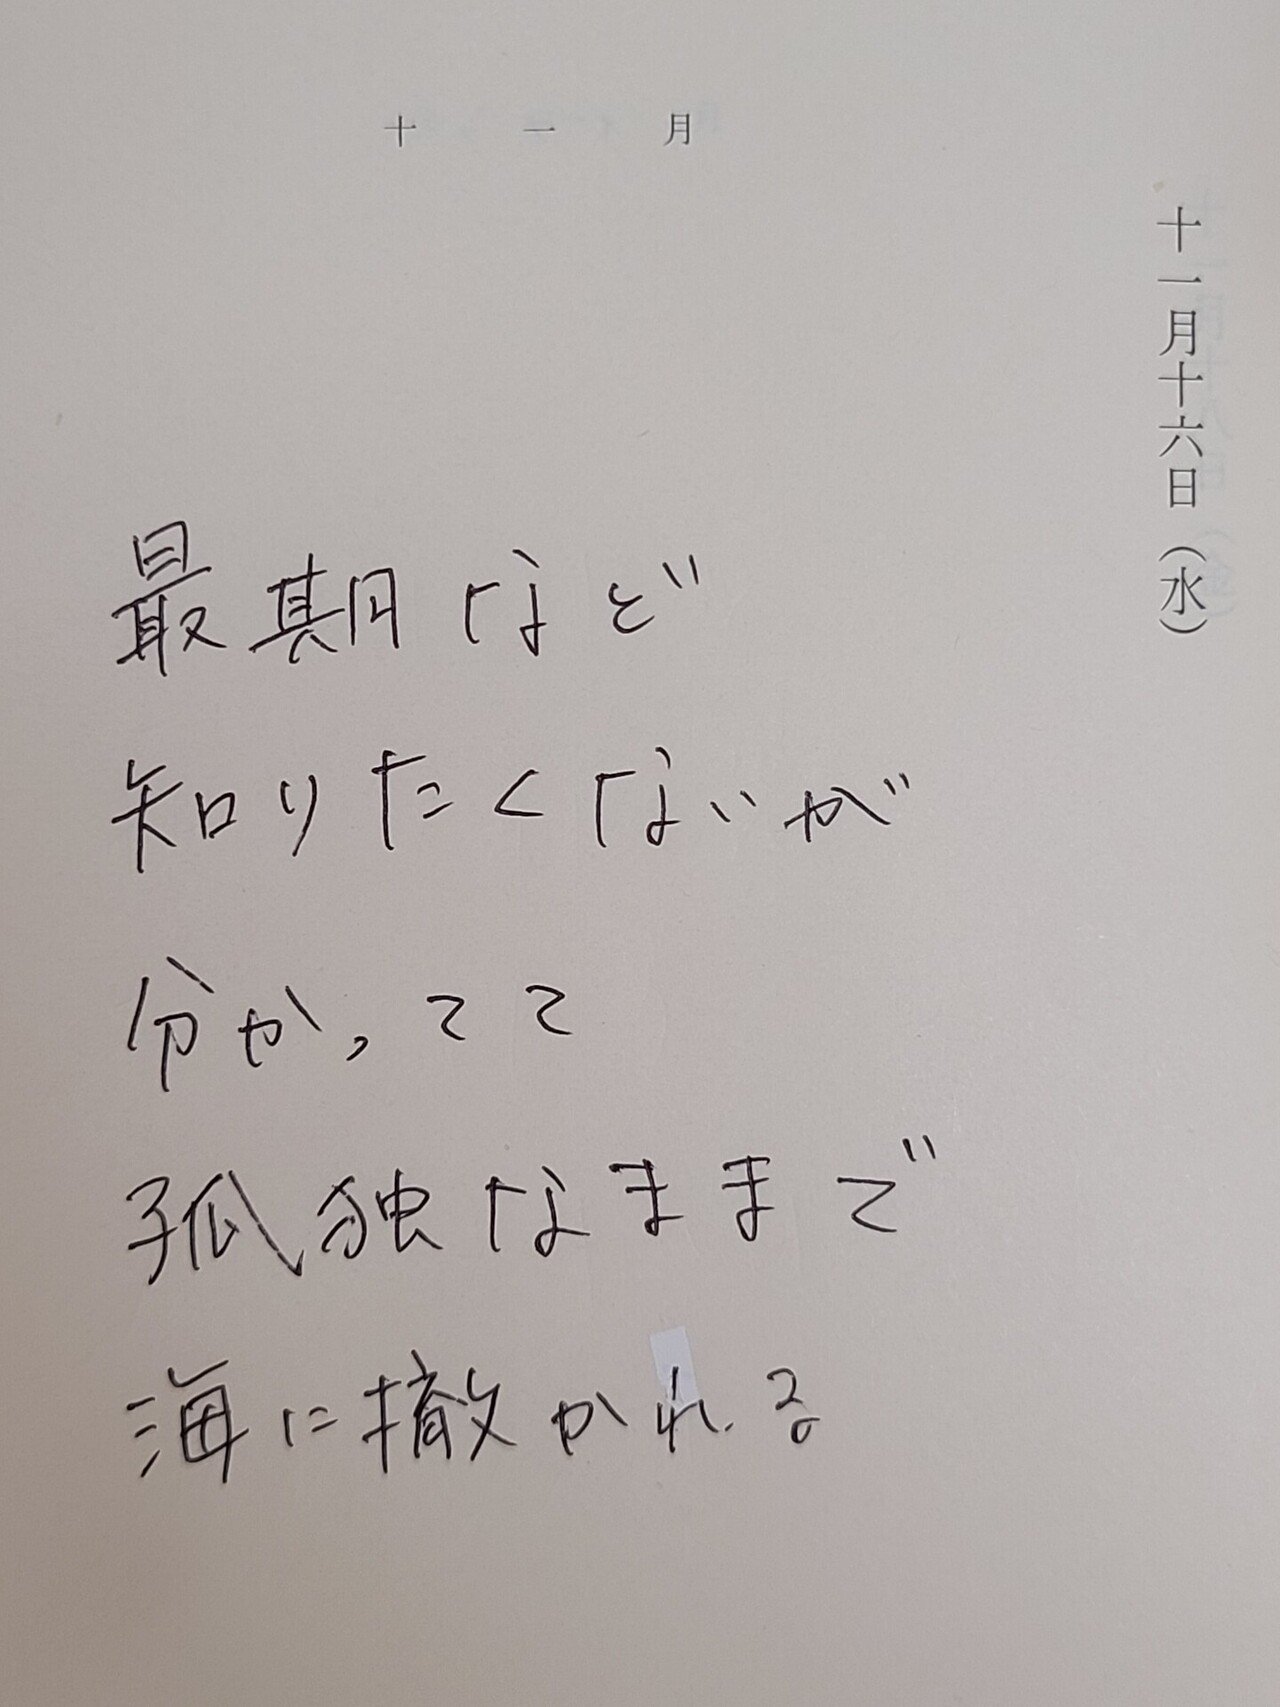 十一月
十一月十六日(水)
最期など
知りたくないが
分かってて
孤独なままで
海に撒かれる